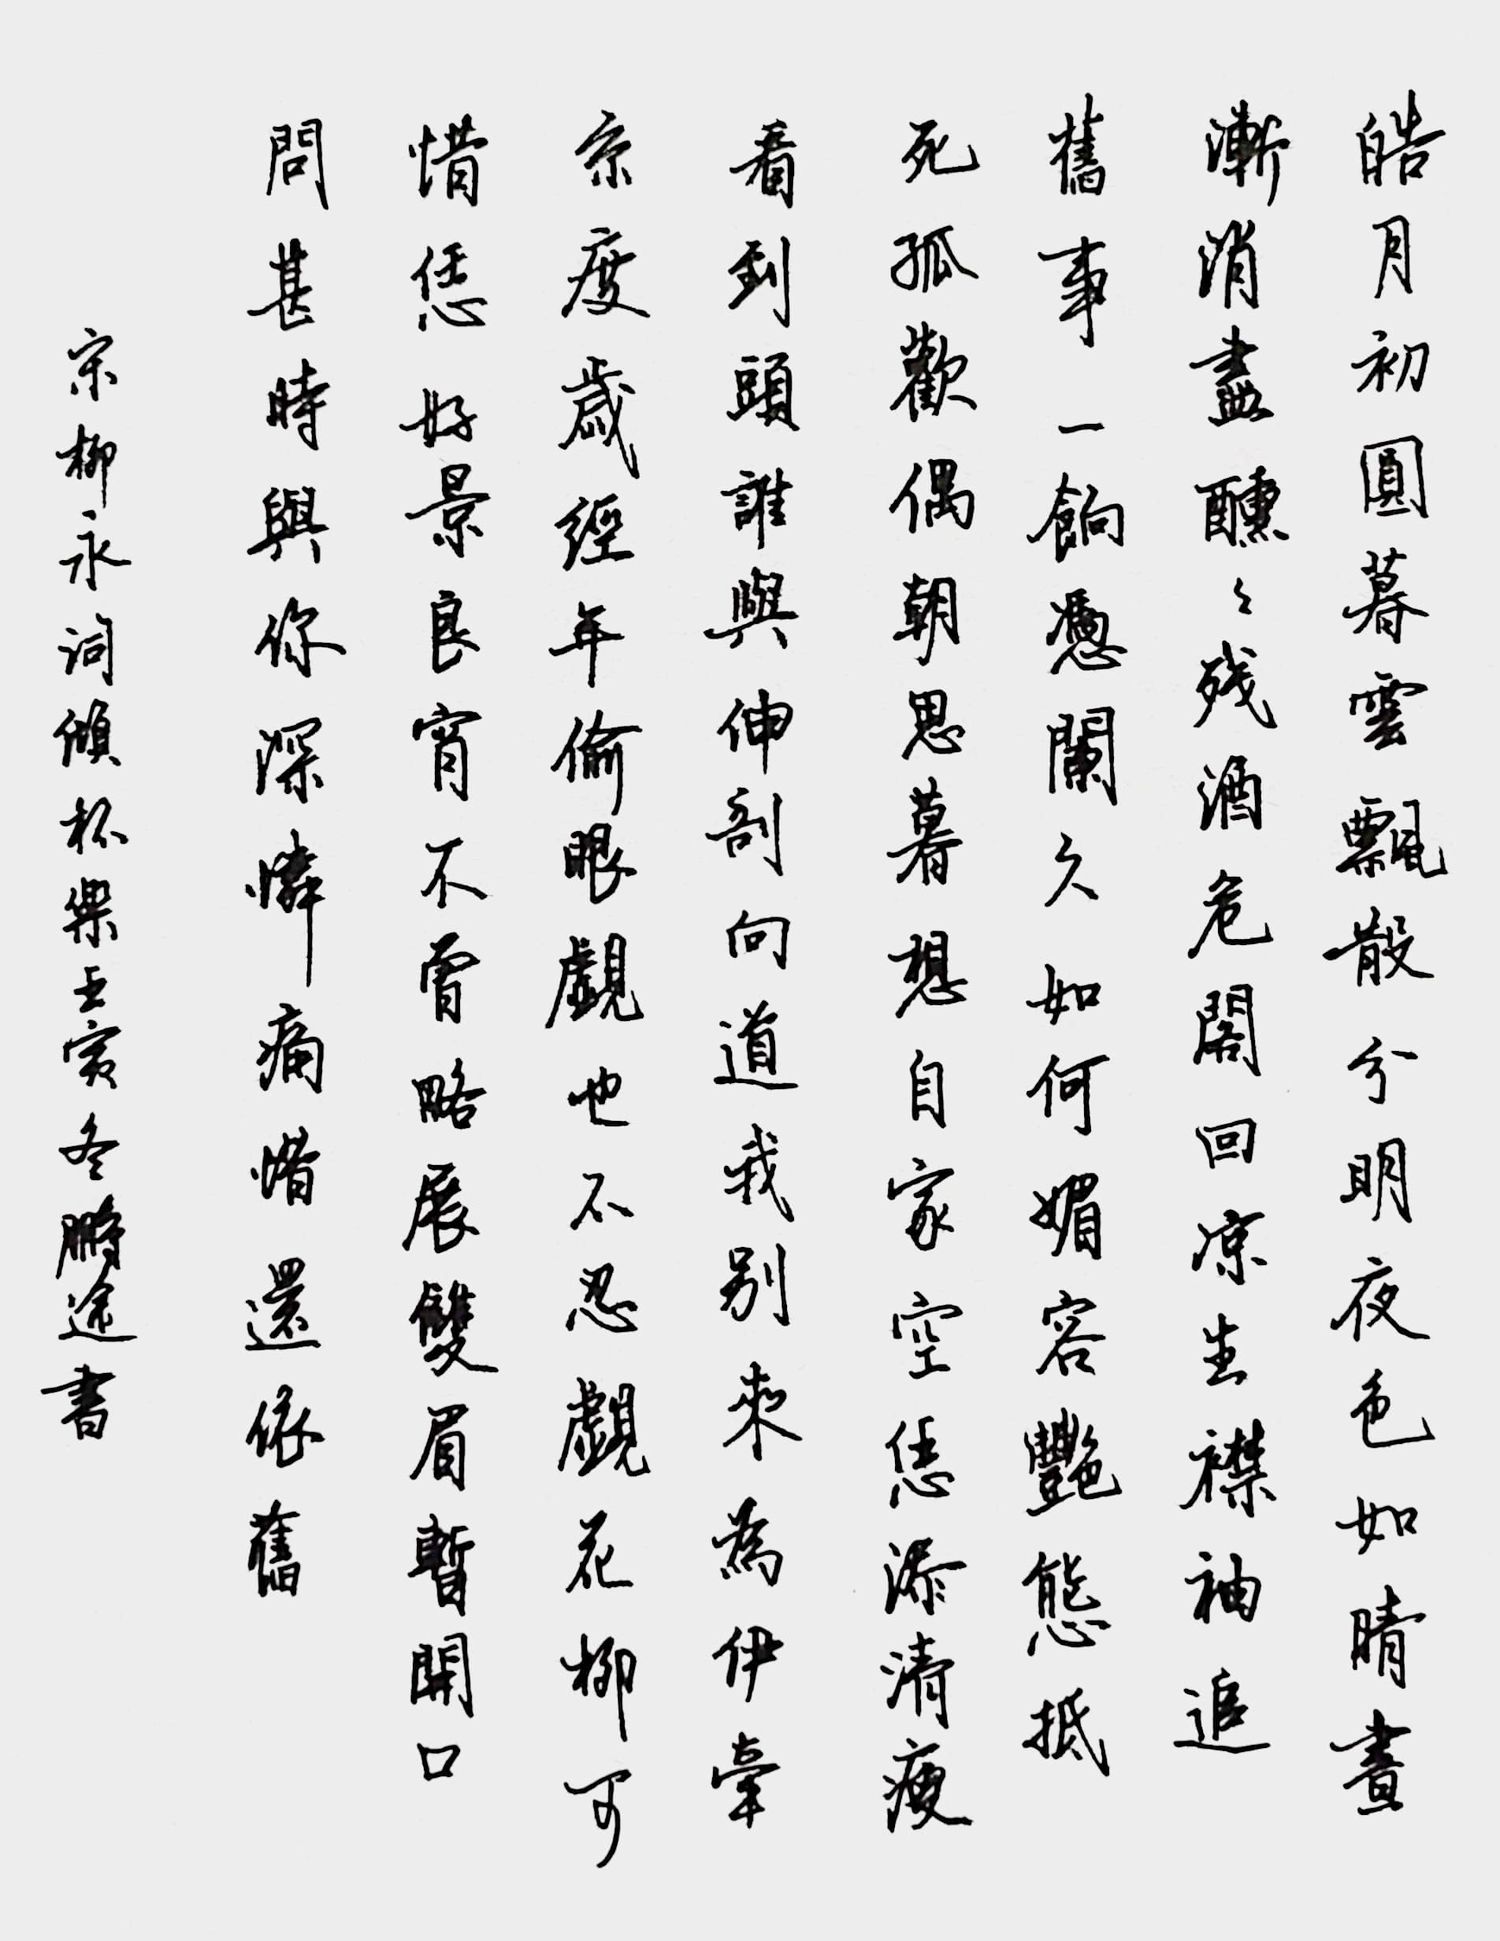 皓月初圓暮雲飄散分明夜色如晴晝
漸消盡醺々残酒危閣回凉生襟袖追
舊事一餉憑闌久如何媚容艷態抵
死孤歡偶朝思暮想自家空恁添清瘦
看到頭誰與伸剖向道我别來為伊牽
系度歲經年偷眼覷也不忍覷花柳可
惜恁好景良宵不曾略展雙眉暫開口
問甚時與你深憐痛惜還依舊
宋柳永词傾杯樂壬寅冬鵬途書